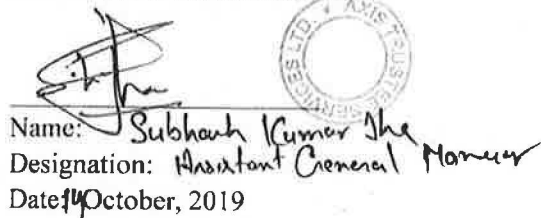 AXIS TRUSTEE SERVICES LTD. *
Name: Subhash Kumar Jha
Designation: Assistant General Manager
Date: 14 October, 2019